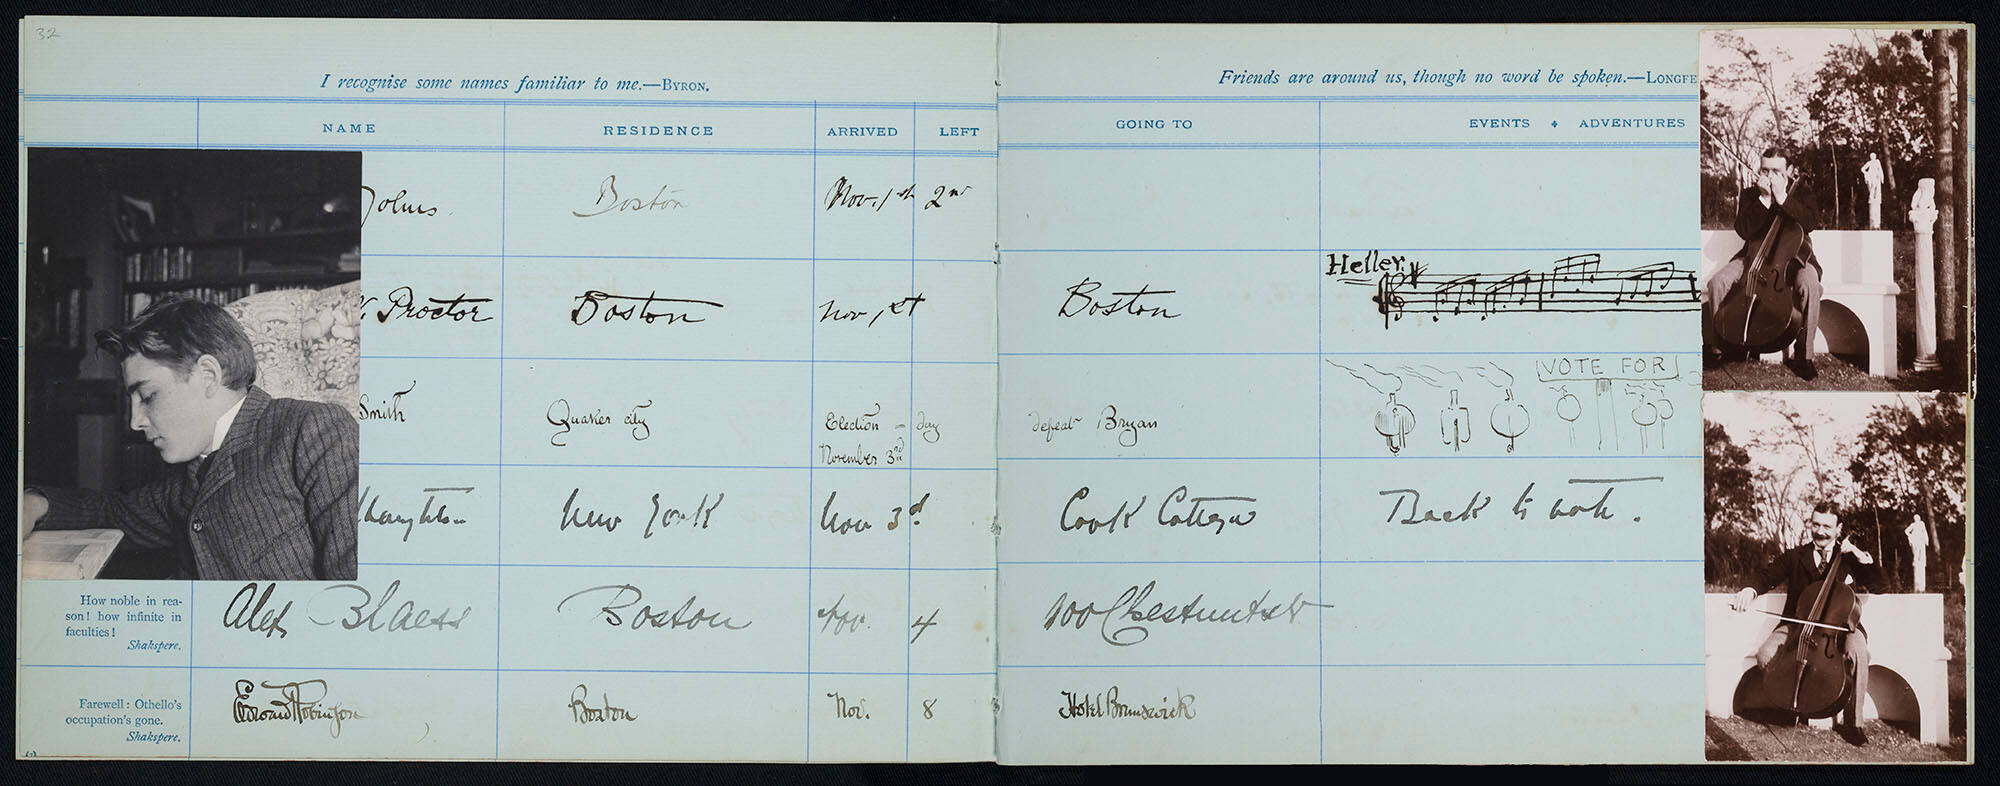 32
I recognise some names familiar to me.—BYRON.
Friends are around us, though no word be spoken.—LONGFE
NAME RESIDENCE ARRIVED LEFT GOING TO EVENTS & ADVENTURES
Johns Boston Nov. 1st 2nd
Proctor Boston Nov 1st Boston Heller.
Smith Quaker city Election – day defeat Bryan VOTE FOR
November 3rd
New York Nov 3d. Cook Cottage Back to vote.
How noble in rea-
son! how infinite in
faculties!
Shakspere.
Alex Blaess Boston Nov. 4 100 Chestnut St
Farewell: Othello's
occupation's gone.
Shakspere.
Edward Robinson Boston Nov. 8 Hotel Brunswick